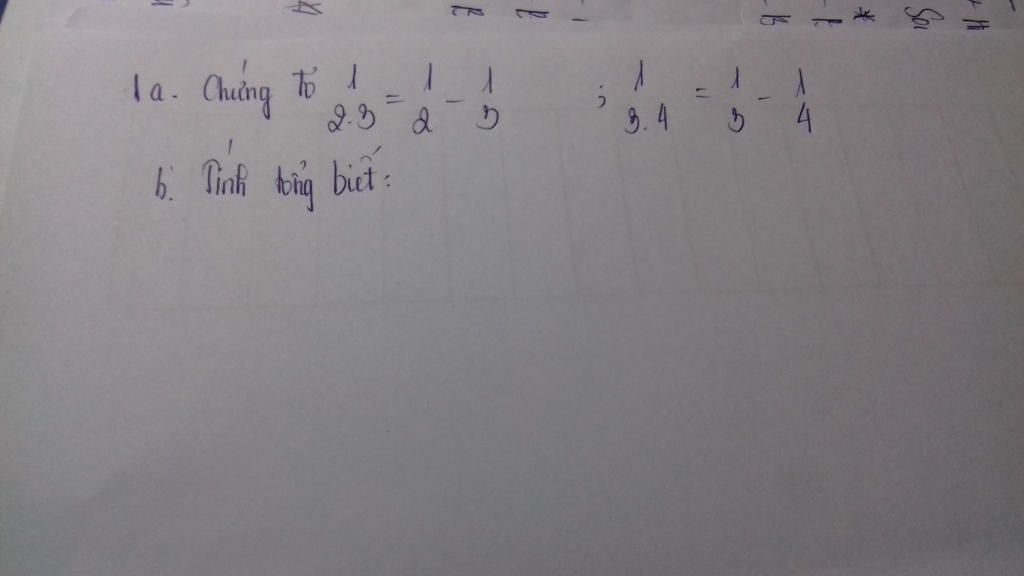 1 a. Chứng tỏ 1/2.3 = 1/2 - 1/3 ; 1/3.4 = 1/3 - 1/4
b. Tính tổng biết: